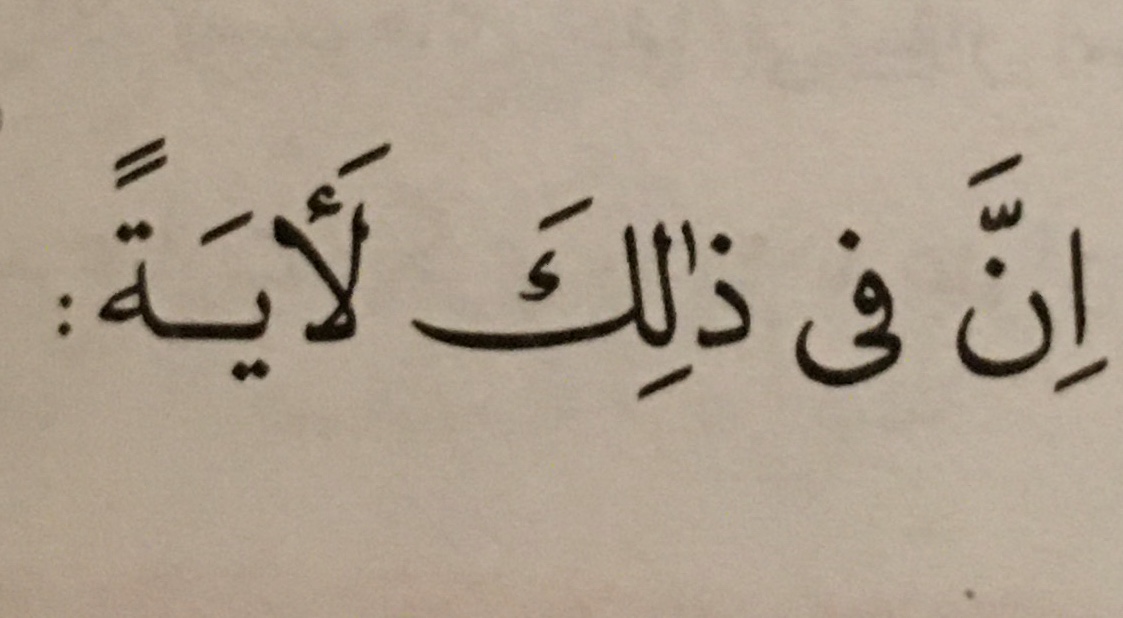 اِنَّ فى ذٰلِكَ لَأَيَةً :